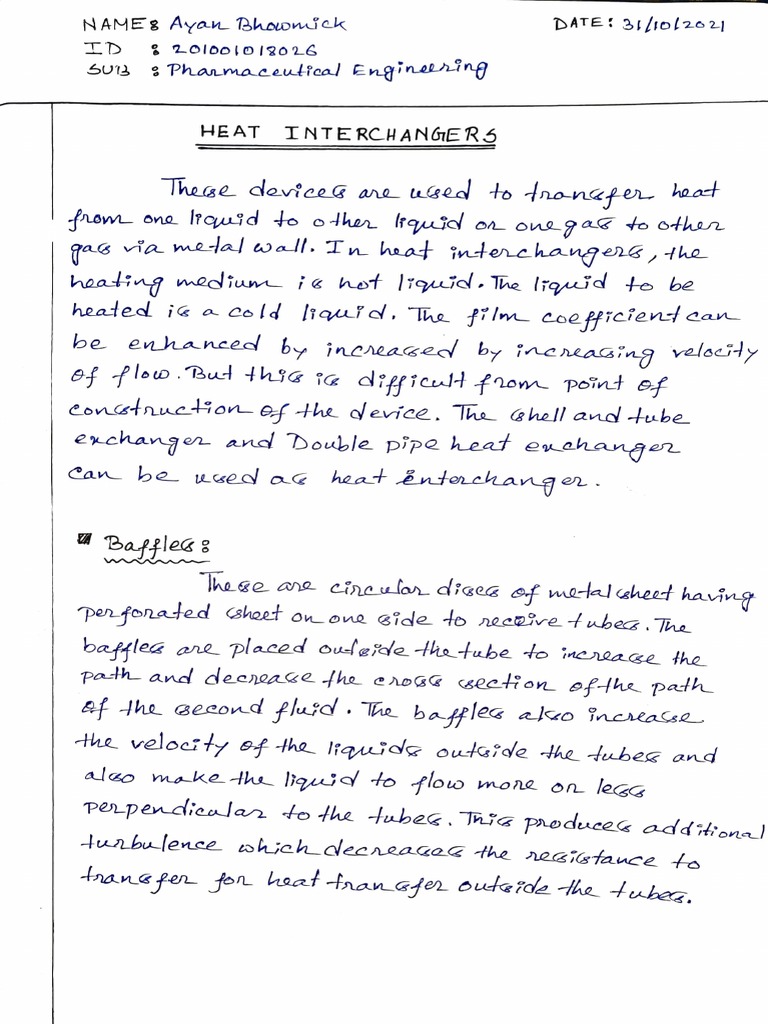 NAME: Ayan Bhowmick DATE: 31/10/2021
ID : 201001018026
SUB : Pharmaceutical Engineering
HEAT INTERCHANGERS
These devices are used to transfer heat
from one liquid to other liquid or one gas to other
gas via metal wall. In heat interchangers, the
heating medium is not liquid. The liquid to be
heated is a cold liquid. The film coefficient can
be enhanced by increased by increasing velocity
of flow. But this is difficult from point of
construction of the device. The shell and tube
exchanger and Double pipe heat exchanger
can be used as heat interchanger.
Baffles:
These are circular discs of metal sheet having
perforated sheet on one side to receive tubes. The
baffles are placed outside the tube to increase the
path and decrease the cross section of the path
of the second fluid. The baffles also increase
the velocity of the liquids outside the tubes and
also make the liquid to flow more or less
perpendicular to the tubes. This produces additional
turbulence which decreases the resistance to
transfer for heat transfer outside the tubes.